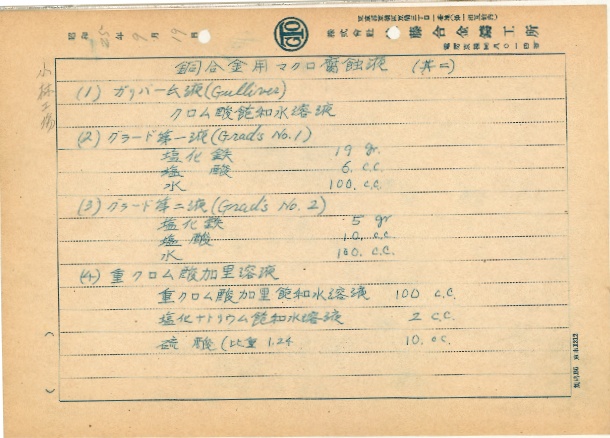 昭和25年9月19日
GTO
株式會社 藤合金鑄工所
銅合金用マクロ腐蝕液 (其二)
(1) ガリバー厶液(Gulliver)
クロム酸飽和水溶液
(2) グラード第一液(Grad's No.1)
塩化鉄 19 gr.
塩酸 6. c.c.
水 100. c.c.
(3) グラード第二液(Grad's No. 2)
塩化鉄 5 gr
塩酸 10. c.c.
水 100. c.c.
(4) 重クロム酸加里溶液
重クロム酸加里飽和水溶液 100 c.c.
塩化ナトリウム飽和水溶液 2 c.c.
硫酸(比重 1.24 10. c.c.